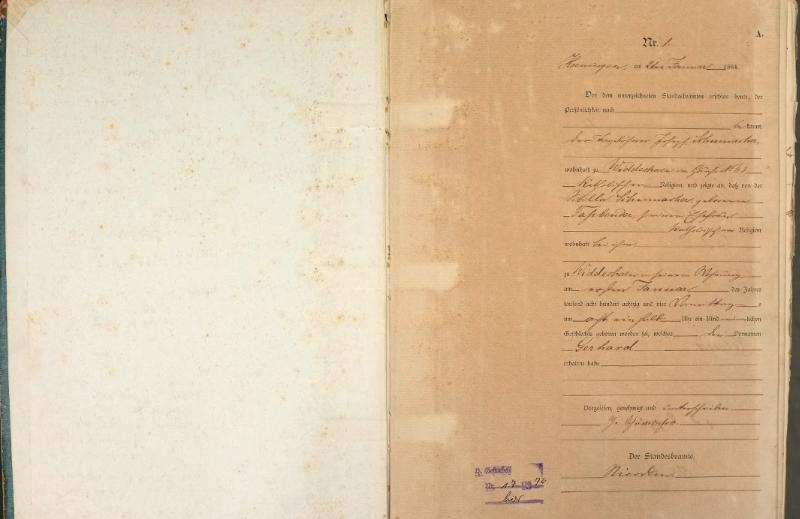 A.
Nr. 1.
am 2ten Januar 1884.
Vor dem unterzeichneten Standesbeamten erschien heute, der
Persönlichkeit nach
be kannt,
der Joseph Schumacher
wohnhaft zu Widdeshoven im Hause No
Katholischer Religion, und zeigte an, daß von der
Schumacher, geborenen
seiner Ehefrau
Katholischer Religion
wohnhaft bei ihm
zu Widdeshoven in seiner Wohnung
am ersten Januar des Jahres
tausend acht hundert achtzig und vier Vormittags
um acht ein halb Uhr ein Kind männlichen
Geschlechts geboren worden sei, welches den Vornamen
Gerhard
erhalten habe
Vorgelesen, genehmigt und unterschrieben
J. Schumacher
Der Standesbeamte.
Nr.